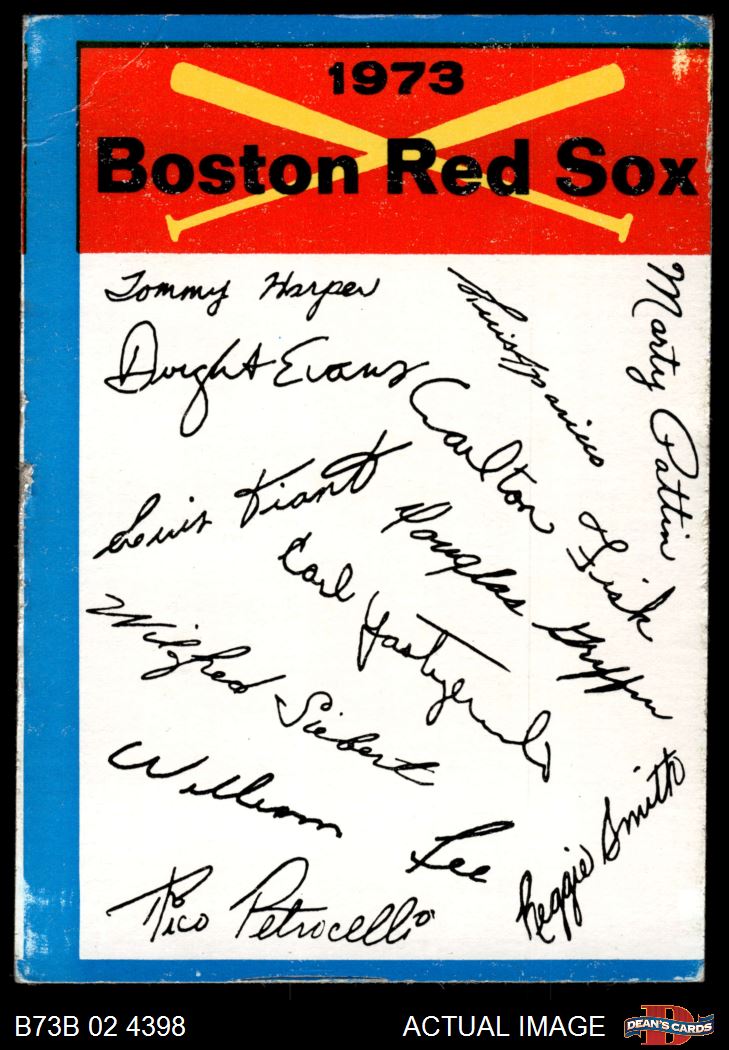 1973
Boston Red Sox
Tommy Harper
Luis Aparicio
Marty Pattin
Dwight Evans
Carlton Fisk
Luis Tiant
Douglas Griffin
Carl Yastrzemski
Wilfred Siebert
William Lee
Reggie Smith
Rico Petrocelli
B73B 02 4398
ACTUAL IMAGE
D
DEAN'S CARDS